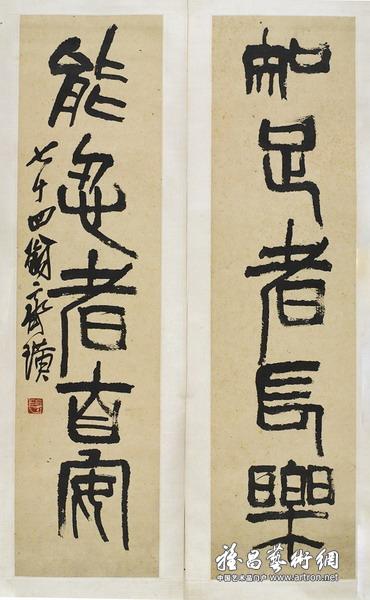 知足者長樂
能忍者自安
七十四歲齊璜
雅昌藝術網
中国艺术品门户 www.artron.net